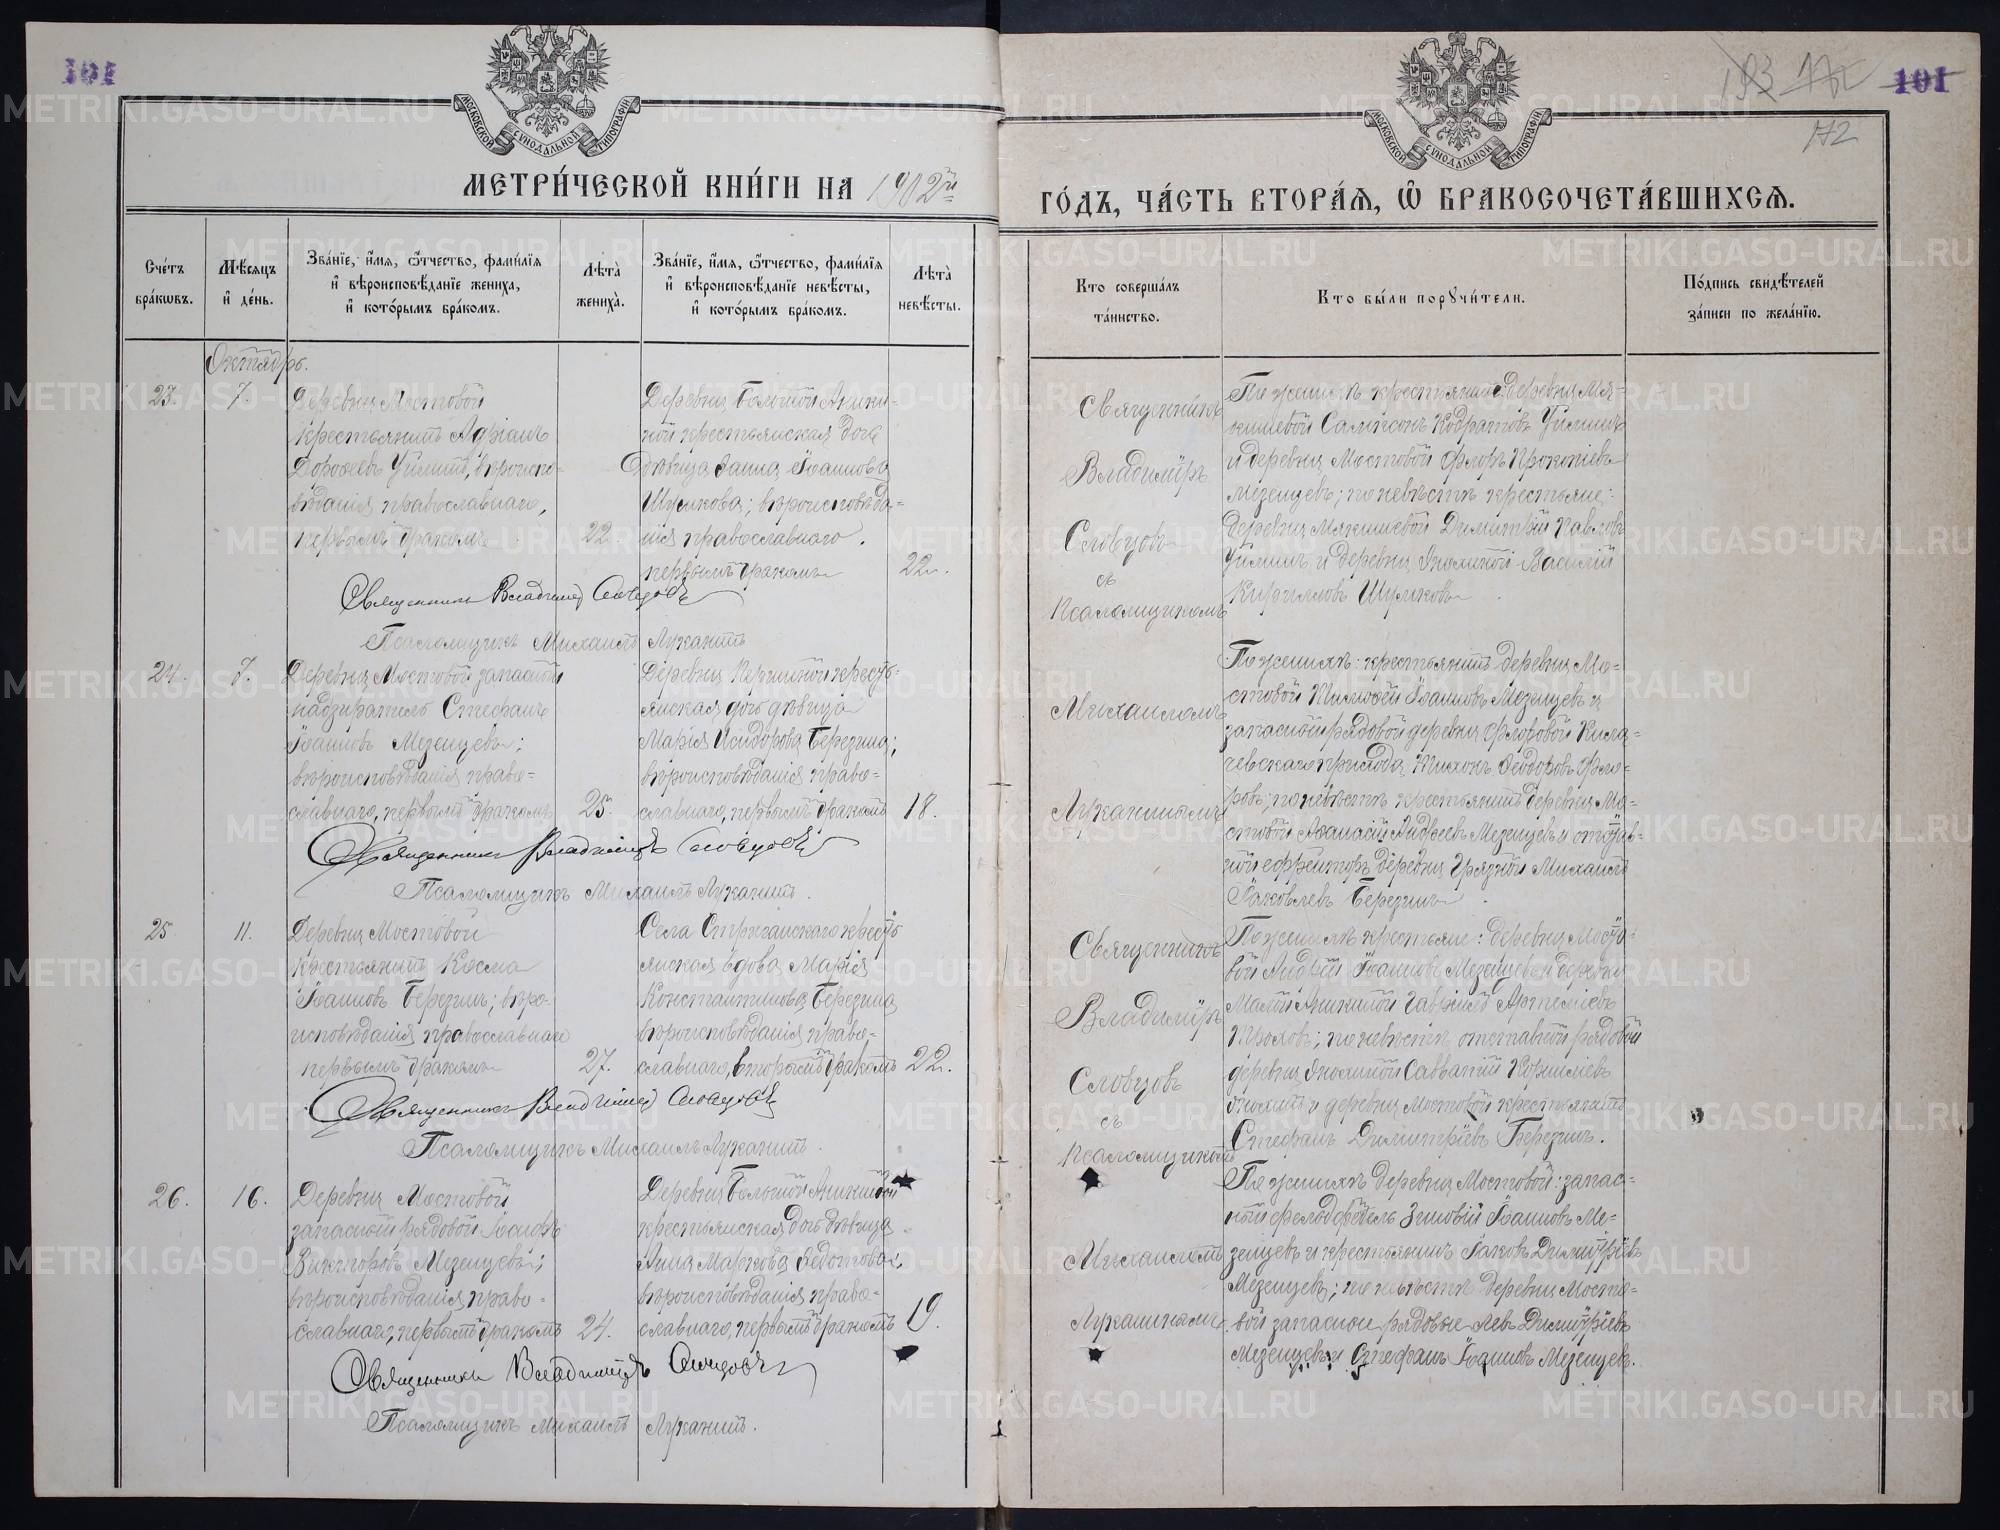 101
МЕТРИ́ЧЕСКОЙ КНИ́ГИ НА 1902й
Сче́тъ бра́кѡвъ.
Мѣсяцъ и҆ де́нь.
Зва́нїе, и҆́мѧ, ѻ҆́тчество, фами́лїѧ и҆ вѣроисповѣ́данїе жениха̀, и҆ кото́рымъ бра́комъ.
Лѣта̀ жениха̀.
Зва́нїе, и҆́мѧ, ѻ҆́тчество, фами́лїѧ и҆ вѣроисповѣ́данїе невѣ́сты, и҆ кото́рымъ бра́комъ.
Лѣта̀ невѣ́сты.
Октябрь.
23.
7.
Деревни Мостовой
крестьянинъ Адріанъ
Дорофеевъ Уймин, вѣроиспо-
вѣданія православнаго,
первымъ бракомъ
22.
Деревни Большой Аники-
ной крестьянская дочь
дѣвица Анна Іоаннова
Шумкова; вѣроисповѣда-
нія православнаго.
первымъ бракомъ
22.
Священникъ Владимір Словцовъ
Псаломщикъ Михаилъ Луканинъ
24.
7.
Деревни Мостовой запасный
надзиратель Стефанъ
Іоанновъ Мезенцевъ;
вѣроисповѣданія право-
славнаго, первымъ бракомъ
25.
Деревни крестьь-
янская дочь дѣвица
Марія Исидорова Березина;
вѣроисповѣданія право-
славнаго, первымъ бракомъ
18.
Священникъ Владиміръ Словцовъ
Псаломщикъ Михаилъ Луканинъ.
25.
11.
Деревни Мостовой
крестьянинъ Косма
Іоанновъ Березинъ; вѣро-
исповѣданія православнаго
первымъ бракомъ
27.
Села Стриганскаго кресть-
янская вдова Марія
Константинова Березина
вѣроисповѣданія право-
славнаго, вторымъ бракомъ
22.
Священникъ Владимір Словцовъ
Псаломщикъ Михаилъ Луканинъ.
26.
16.
Деревни Мостовой
запасный рядовой Іосифъ
Викторовъ Мезенцевъ;
вѣроисповѣданія право-
славнаго, первымъ бракомъ
24.
Деревни Большой Аникиной
крестьянская дочь дѣвица
Анна Маркова Ѳедотова;
вѣроисповѣданія право-
славнаго, первымъ бракомъ
19.
Священникъ Владиміръ Словцовъ
Псаломщикъ Михаилъ Луканинъ.
193 172 101
172
ГО́ДЪ, ЧА́СТЬ ВТОРА́Ѧ, Ѽ БРАКОСОЧЕТА́ВШИХСѦ.
Кто соверша́лъ та́инство.
Кто бы́ли порꙋчи́тели.
По́дпись свидѣ́телей за́писи по жела́нїю.
Священникъ
Владиміръ
Словцовъ
съ
Псаломщикомъ
Михаиломъ
Луканинымъ
По женихѣ: крестьянинъ деревни Мя-
кишевой Сампсонъ Кодратовъ Уйминъ
и деревни Мостовой Флоръ Прокопіевъ
Мезенцевъ; по невѣстѣ крестьяне:
деревни Мякишевой Димитрій Павловъ
Уйминъ и деревни Василій
Кирилловъ Шумковъ.
По женихѣ: крестьянинъ деревни Мо-
стовой Тимоѳей Іоанновъ Мезенцевъ и
запасный рядовой деревни Флоровой Кила-
чевскаго прихода Тихонъ Ѳеодоровъ Фло-
ровъ; по невѣстѣ крестьянинъ деревни Мо-
стовой Аѳанасій Андреевъ Мезенцевъ и отстав-
ной ефрейторъ деревни Грязной Михаилъ
Іаковлевъ Березинъ.
Священникъ
Владиміръ
Словцовъ
съ
Псаломщикомъ
Михаиломъ
Луканинымъ
По женихѣ крестьяне: деревни Мосто-
вой Андрей Іоанновъ Мезенцевъ и деревни
Малой Аникиной Гавріилъ Артеміевъ
; по невѣстѣ отставной рядовой
деревни Савватій Корниліевъ
и деревни Мостовой крестьянинъ
Стефанъ Димитріевъ Березинъ.
По женихѣ деревни Мостовой: запас-
ный фельдфебель Зиновій Іоанновъ Ме-
зенцевъ и крестьянинъ Іаковъ Димитріевъ
Мезенцевъ; по невѣстѣ деревни Мосто-
вой запасные рядовые Левъ Димитріевъ
Мезенцевъ и Стефанъ Іоанновъ Мезенцевъ.